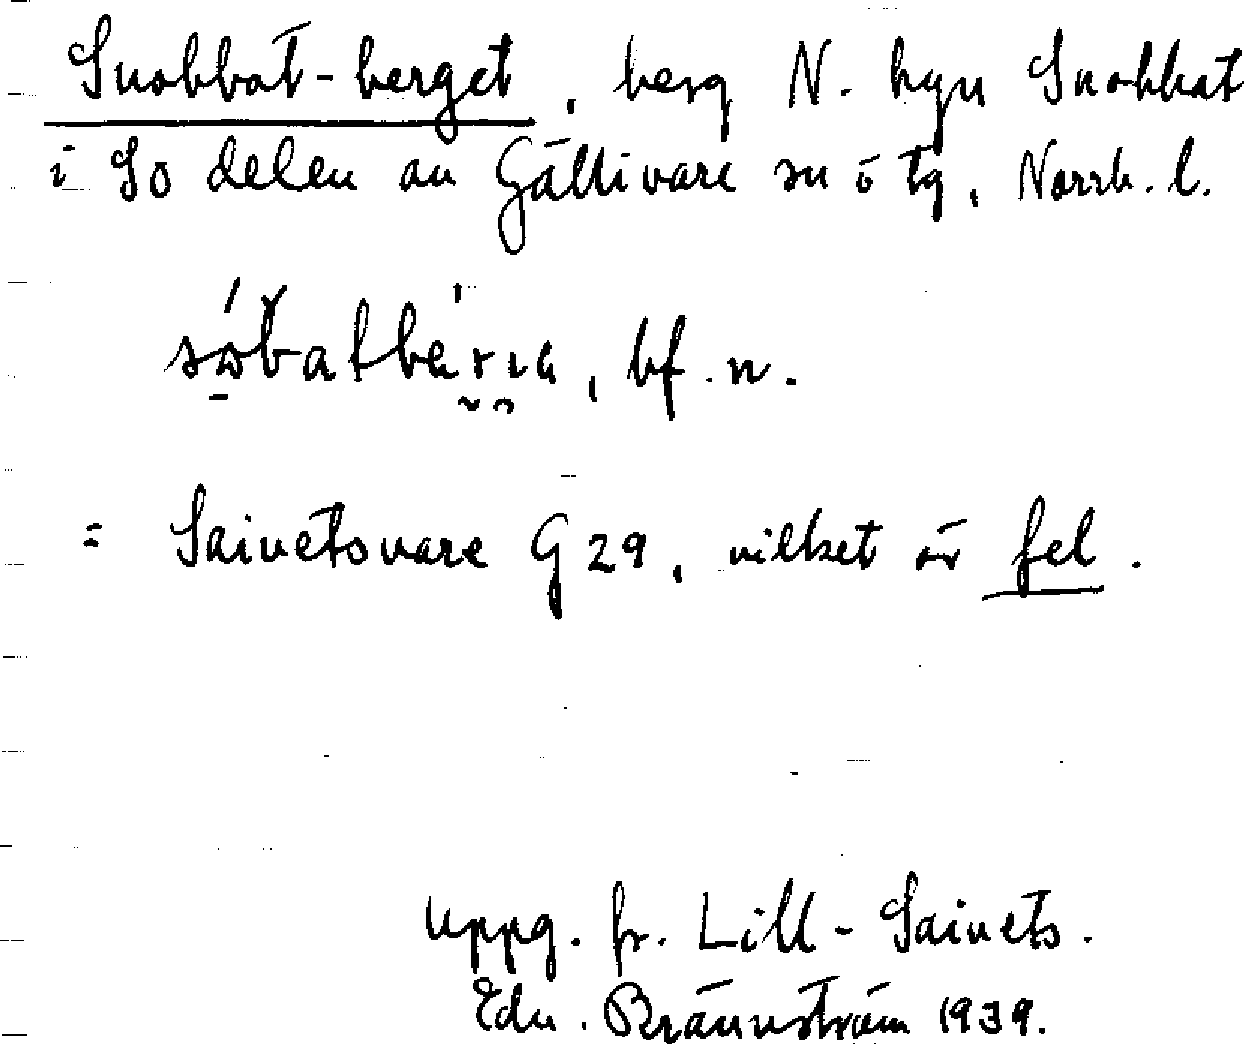 Snobbot-berget, berg N. byn Snobbat
i So delen av Gällivare sn ö tg, Norrb. l.
bf. n.
= Saivetsvare G 29, vilket är fel.
uppg. fr. Lill-Saivets.
Edv. Brännström 1939.